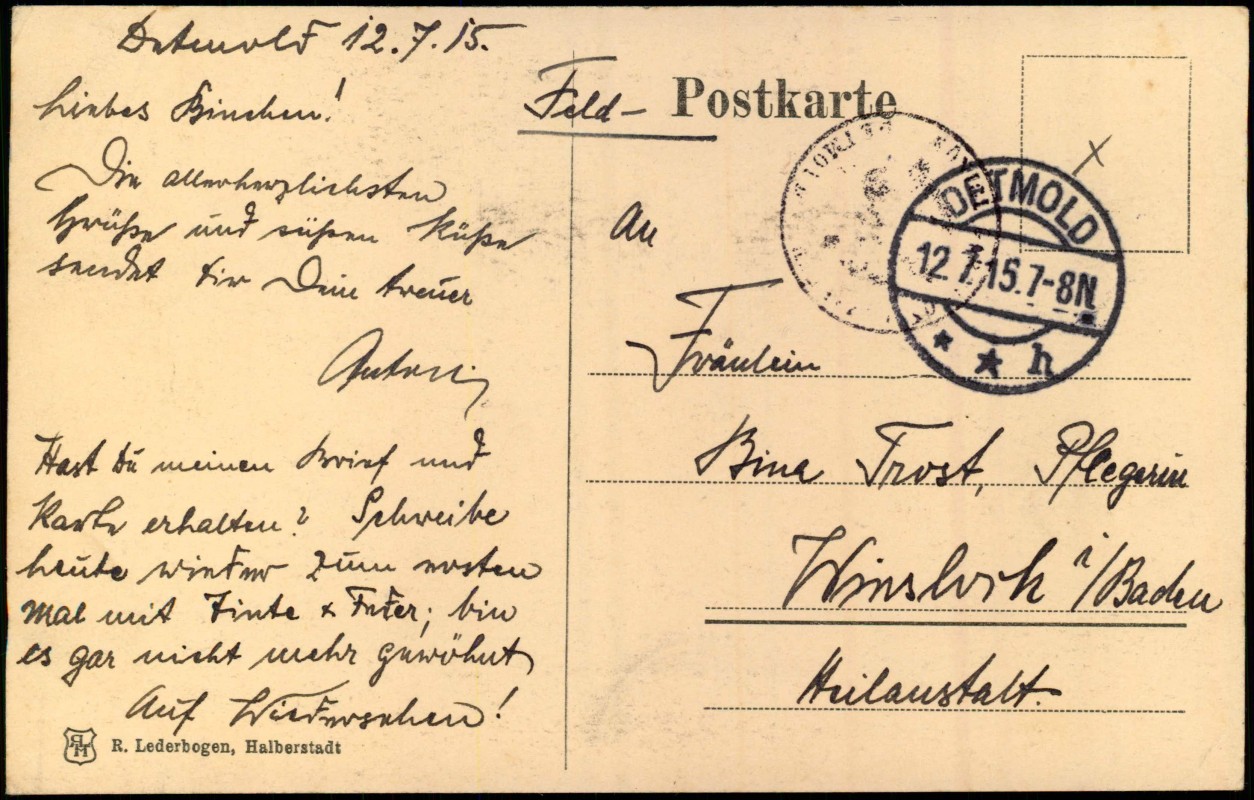 Detmold 12.7.15.
Liebes Binchen!
Die allerherzlichsten
Grüße und süßen Küße
sendet dir Dein treuer
Anton
Hast Du meinen Brief und
Karte erhalten? Schreibe
heute wieder zum ersten
mal mit Tinte & Feder; bin
es gar nicht mehr gewöhnt
Auf Wiedersehen!
R. Lederbogen, Halberstadt
Feld- Postkarte
DETMOLD
12.7.15.7-8N
* * h
An
Fräulein
Bina Trost, Pflegerin
Wiesloch i/Baden
Heilanstalt.